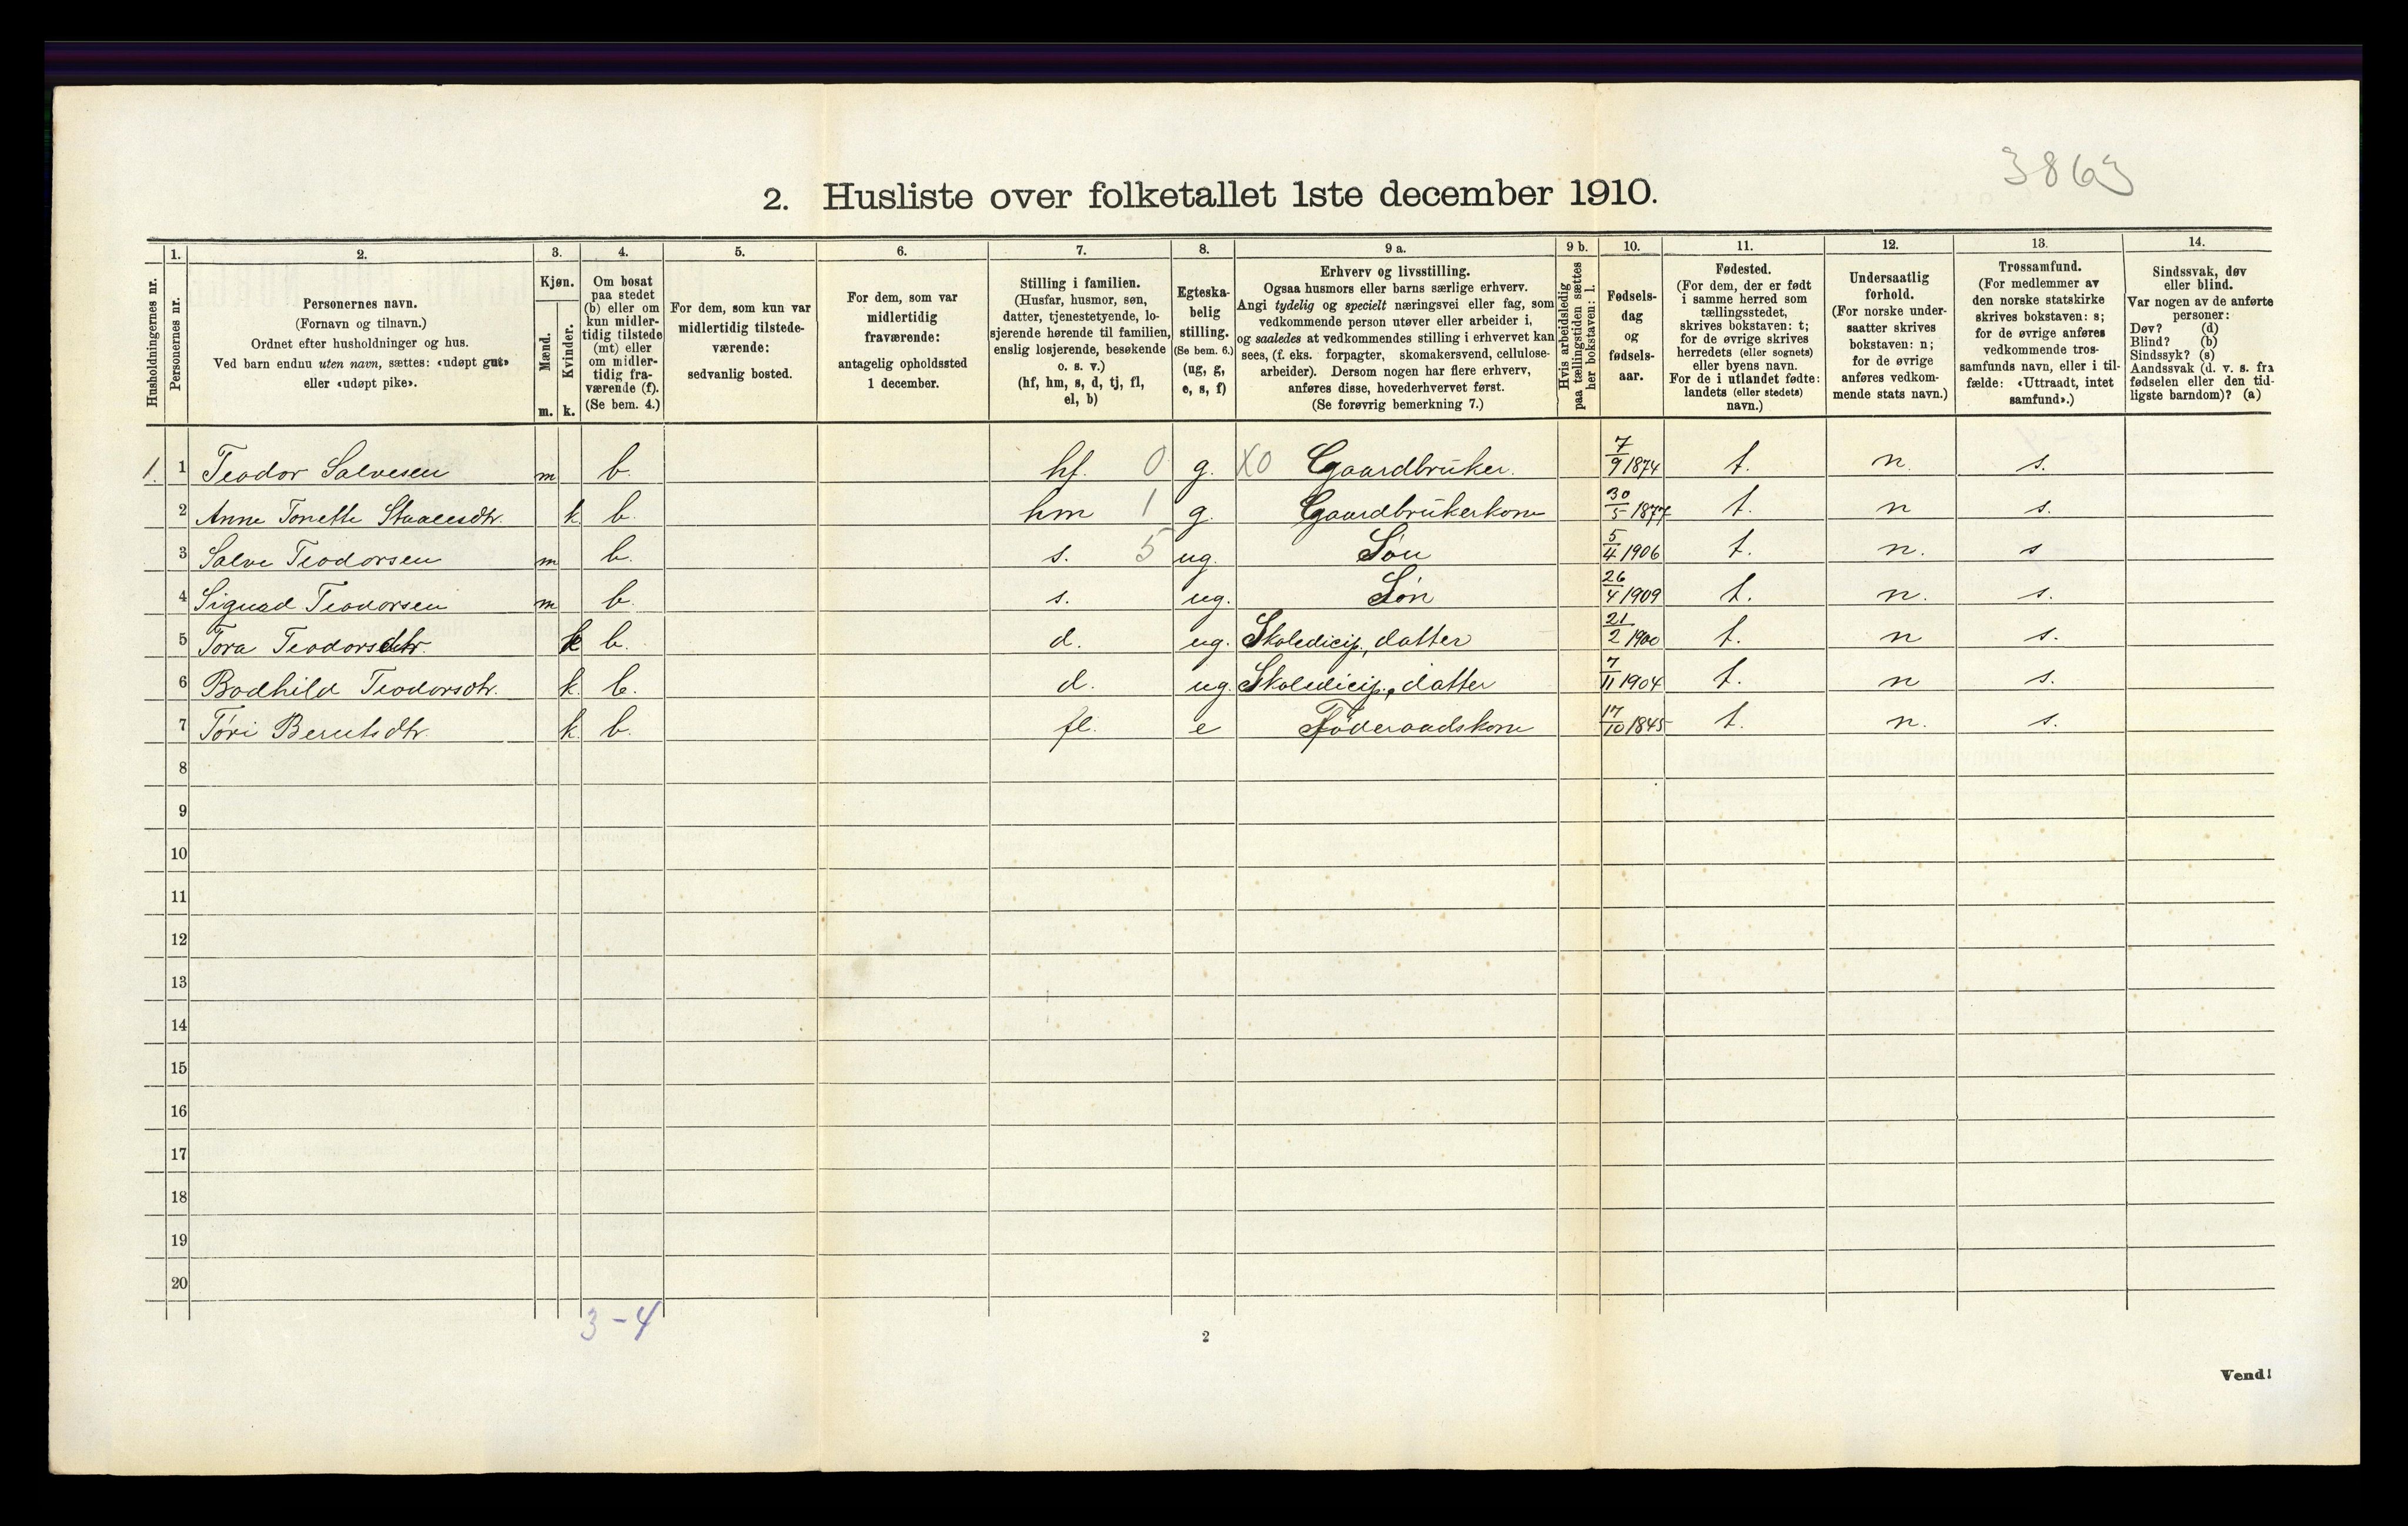 3863
2. Husliste over folketallet 1ste december 1910.
1. 2. 3. 4. 5. 6. 7. 8. 9 a. 9 b. 10. 11. 12. 13. 14.
Husholdningernes nr.
Personernes nr.
Personernes navn.
(Fornavn og tilnavn.)
Ordnet efter husholdninger og hus.
Ved barn endnu uten navn, sættes: «udøpt gut»
eller «udøpt pike».
Kjøn.
Mænd.
Kvinder.
m. k.
Om bosat
paa stedet
(b) eller om
kun midler-
tidig tilstede
(mt) eller
om midler-
tidig fra-
værende (f).
(Se bem. 4.)
For dem, som kun var
midlertidig tilstede-
værende:
sedvanlig bosted.
For dem, som var
midlertidig
fraværende:
antagelig opholdssted
1 december.
Stilling i familien.
(Husfar, husmor, søn,
datter, tjenestetyende, lo-
sjerende hørende til familien,
enslig losjerende, besøkende
o. s. v.)
(hf, hm, s, d, tj, fl,
el, b)
Egteska-
belig
stilling.
(Se bem. 6.)
(ug, g,
e, s, f)
Erhverv og livsstilling.
Ogsaa husmors eller barns særlige erhverv.
Angi tydelig og specielt næringsvei eller fag, som
vedkommende person utøver eller arbeider i,
og saaledes at vedkommendes stilling i erhvervet kan
sees, (f. eks. forpagter, skomakersvend, cellulose-
arbeider). Dersom nogen har flere erhverv,
anføres disse, hovederhvervet først.
(Se forøvrig bemerkning 7.)
Hvis arbeidsledig
paa tællingstiden sættes
her bokstaven: l.
Fødsels-
dag
og
fødsels-
aar.
Fødested.
(For dem, der er født
i samme herred som
tællingsstedet,
skrives bokstaven: t;
for de øvrige skrives
herredets (eller sognets)
eller byens navn.
For de i utlandet fødte:
landets (eller stedets)
navn.)
Undersaatlig
forhold.
(For norske under-
saatter skrives
bokstaven: n;
for de øvrige
anføres vedkom-
mende stats navn.)
Trossamfund.
(For medlemmer av
den norske statskirke
skrives bokstaven: s;
for de øvrige anføres
vedkommende tros-
samfunds navn, eller i til-
fælde: «Uttraadt, intet
samfund».)
Sindssvak, døv
eller blind.
Var nogen av de anførte
personer:
Døv? (d)
Blind? (b)
Sindssyk? (s)
Aandssvak (d. v. s. fra
fødselen eller den tid-
ligste barndom)? (a)
1. 1 Teodor Salvesen m b. hf. 0 g. X0 Gaardbruker. 7/9 1874 t. n. s.
2 Anne Tonette Staalesdtr. k b. hm 1 g. Gaardbrukerkone 30/5 1877 t. n s.
3 Salve Teodorsen m b. s. 5 ug. Søn 5/4 1906 t. n. s
4 Sigurd Teodorsen m b. s. ug. Søn 26/4 1909 t. n. s.
5 Tora Teodorsdtr. k b. d. ug. Skoledicip., datter 21/2 1900 t. n s.
6 Bodhild Teodorsdtr. k. b. d. ug. Skoledicip., datter 7/11 1904 t. n s.
7 Tøri Berntsdtr. k. b. fl. e Føderaadskone 17/10 1845 t. n. s.
8
9
10
11
12
13
14
15
16
17
18
19
20
3-4
2
Vend!